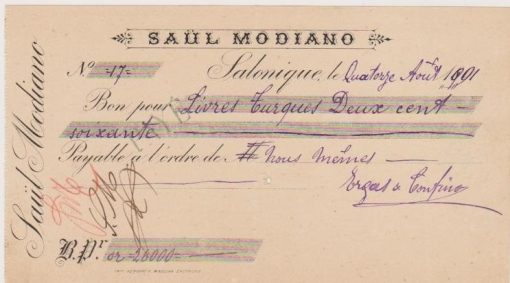 SAÜL MODIANO
Nº 17
Salonique, le Quatorze Août 1901
Bon pour Livres Turques Deux cent
soixante
Payable à l'ordre de nous mêmes
Saül Modiano
B. Pr. or 26000